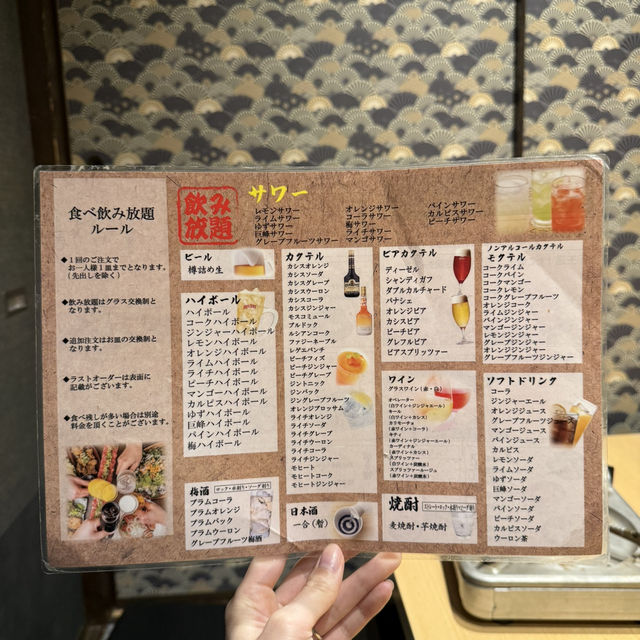 食べ飲み放題
ルール
◆1回のご注文で
お一人様1皿までとなります。
(先出しを除く)
◆飲み放題はグラス交換制と
なります。
◆追加注文はお皿の交換制と
なります。
◆ラストオーダーは表面に
記載がございます。
◆食べ残しが多い場合は別途
料金を頂くことがございます。
飲み
放題
サワー
レモンサワー
ライムサワー
ゆずサワー
巨峰サワー
グレープフルーツサワー
オレンジサワー
コーラサワー
梅サワー
ライチサワー
マンゴーサワー
パインサワー
カルピスサワー
ピーチサワー
ビール
樽詰め生
ハイボール
ハイボール
コークハイボール
ジンジャーハイボール
レモンハイボール
オレンジハイボール
ライムハイボール
ライチハイボール
ピーチハイボール
マンゴーハイボール
カルピスハイボール
ゆずハイボール
巨峰ハイボール
パインハイボール
梅ハイボール
梅酒
ロック・水割り・ソーダ割り
プラムコーラ
プラムオレンジ
プラムバック
プラムウーロン
グレープフルーツ梅酒
カクテル
カシスオレンジ
カシスソーダ
カシスグレープ
カシスウーロン
カシスコーラ
カシスジンジャー
モスコミュール
ブルドック
ルシアンコーク
ファジーネーブル
レゲエパンチ
ピーチフィズ
ピーチジンジャー
ピーチグレープ
ジントニック
ジンバック
ジングレープフルーツ
オレンジブロッサム
ライチオレンジ
ライチソーダ
ライチグレープ
ライチウーロン
ライチコーラ
ライチジンジャー
モヒート
モヒートコーク
モヒートジンジャー
日本酒
一合(暫)
ビアカクテル
ディーゼル
シャンディガフ
ダブルカルチャード
パナシェ
オレンジビア
カシスビア
ピーチビア
グレフルビア
ビアスプリッツァー
ワイン
グラスワイン(赤・白)
オペレーター
(白ワイン+ジンジャエール)
キール
(白ワイン+カシス)
カリモーチョ
(赤ワイン+コーラ)
キティ
(赤ワイン+ジンジャエール)
カーディナル
(赤ワイン+カシス)
スプリッツァー
(白ワイン+炭酸水)
スプリッツァールージュ
(赤ワイン+炭酸水)
焼酎
ストレート・ロック・水割り・ソーダ割り
麦焼酎・芋焼酎
ノンアルコールカクテル
モクテル
コークライム
コークパイン
コークマンゴー
コークレモン
コークグレープフルーツ
オレンジコーク
ライムジンジャー
パインジンジャー
マンゴージンジャー
レモンジンジャー
グレープジンジャー
オレンジジンジャー
グレープフルーツジンジャー
ソフトドリンク
コーラ
ジンジャーエール
オレンジジュース
グレープフルーツジュース
マンゴージュース
パインジュース
カルピス
レモンソーダ
ライムソーダ
ゆずソーダ
巨峰ソーダ
マンゴーソーダ
パインソーダ
ピーチソーダ
カルピスソーダ
ウーロン茶